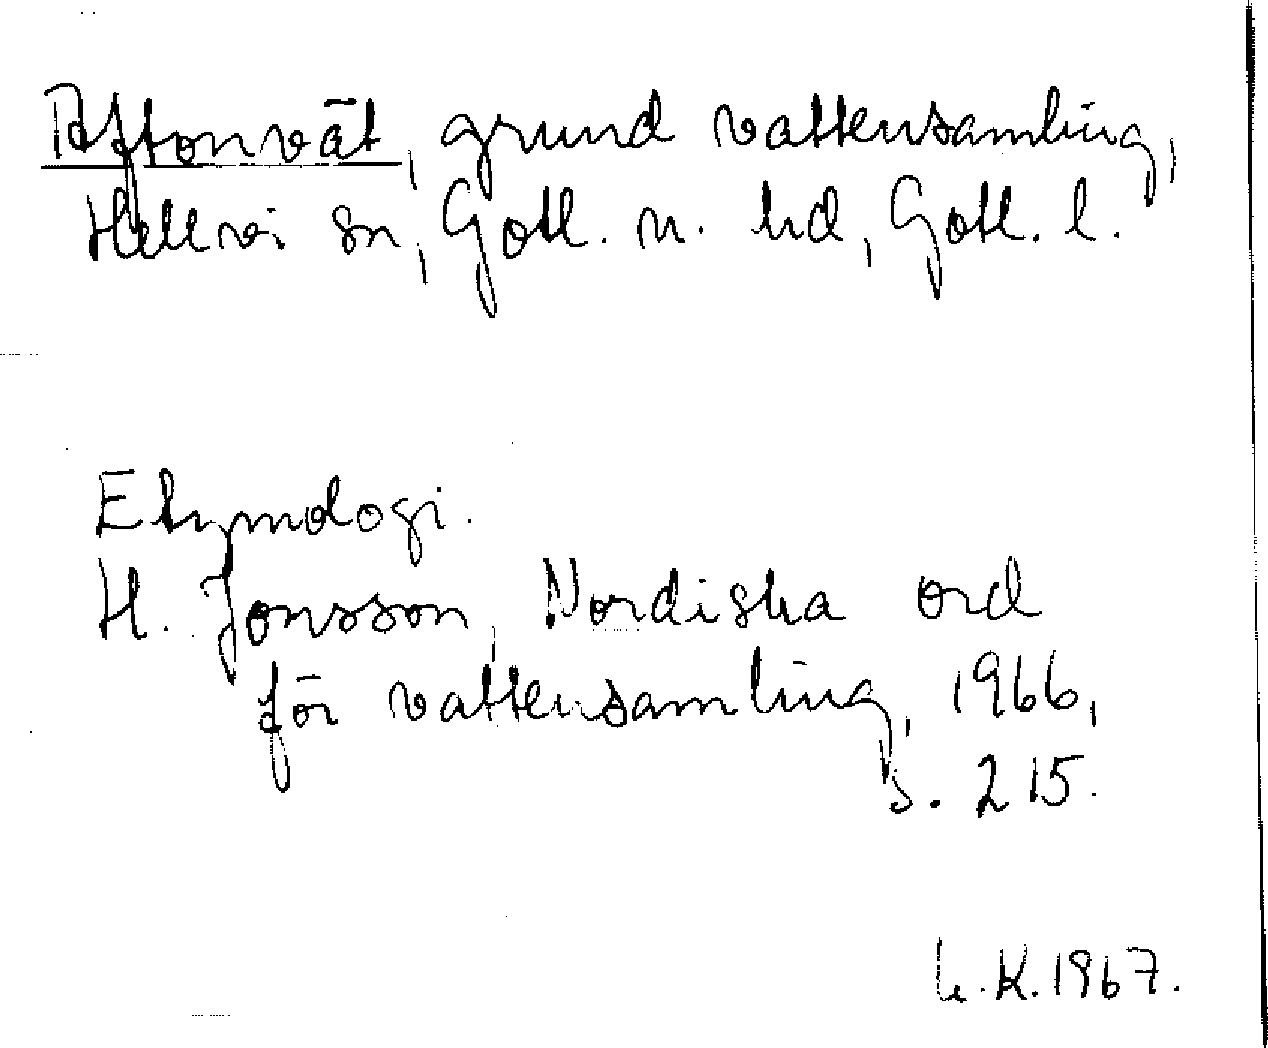 Aftonvät, grund vattensamling,
Hellvi sn, Gotl. n. hd, Gotl. l.
Etymologi.
H. Jonsson, Nordiska ord
för vattensamling, 1966,
s. 215.
K. 1967.